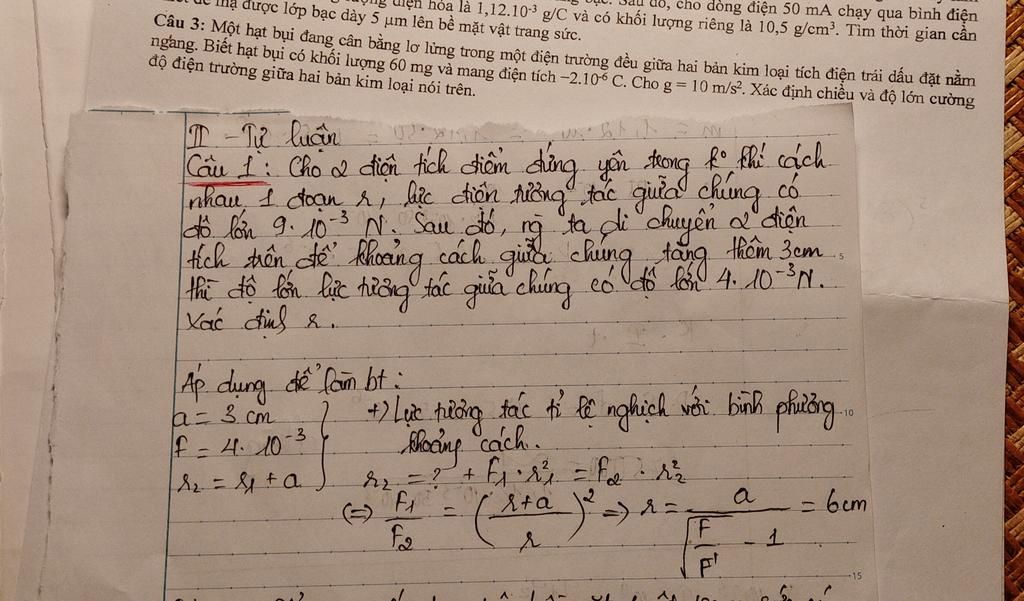 điện hóa là 1,12.10⁻³ g/C và có khối lượng riêng là 10,5 g/cm³. Tìm thời gian cần
mạ được lớp bạc dày 5 μm lên bề mặt vật trang sức. Sau đó, cho dòng điện 50 mA chạy qua bình điện
Câu 3: Một hạt bụi đang cân bằng lơ lửng trong một điện trường đều giữa hai bản kim loại tích điện trái dấu đặt nằm
ngang. Biết hạt bụi có khối lượng 60 mg và mang điện tích −2.10⁻⁶ C. Cho g = 10 m/s². Xác định chiều và độ lớn cường
độ điện trường giữa hai bản kim loại nói trên.
II - Tự luận
Câu 1: Cho 2 điện tích điểm đứng yên trong k° khí cách
nhau 1 đoạn r, lực điện tương tác giữa chúng có
độ lớn 9.10⁻³ N. Sau đó, ng ta di chuyển 2 điện
tích trên để khoảng cách giữa chúng tăng thêm 3cm
5
thì độ lớn lực tương tác giữa chúng có độ lớn 4.10⁻³N.
Xác định r.
Áp dụng để làm bt:
a = 3 cm
f = 4.10⁻³
r₂ = r₁ + a
+) Lực tương tác tỉ lệ nghịch với bình phương
10
khoảng cách.
r₂ = ? + F₁.r₁² = F₂.r₂²
(=) F₁/F₂ = ((r+a)/r)² => r = a/(√(F/F') - 1) = 6cm
15